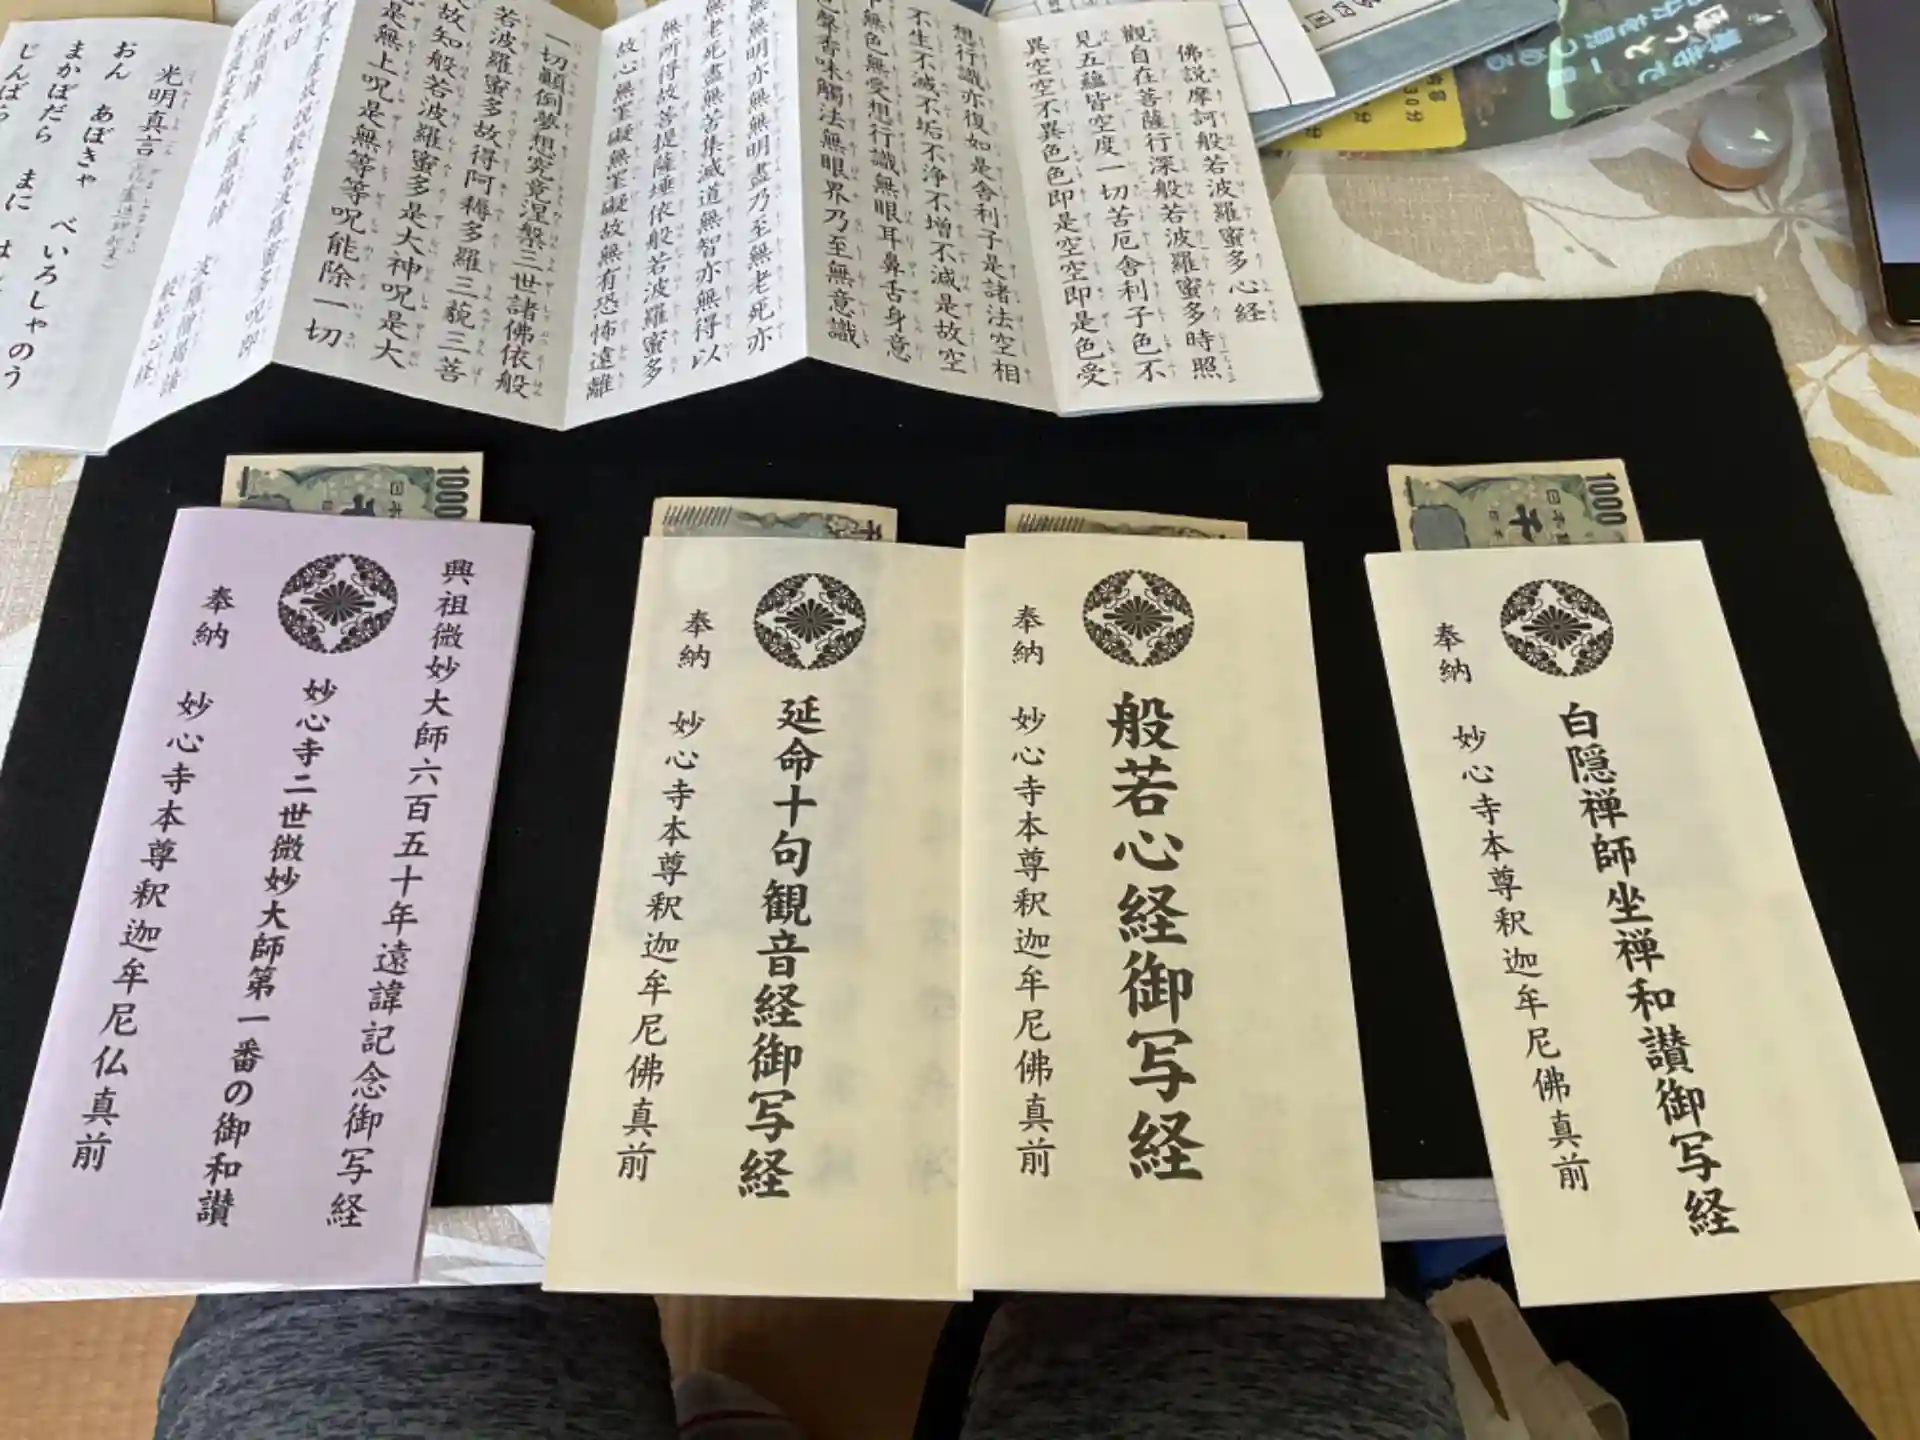 佛説摩訶般若波羅蜜多心経
觀自在菩薩行深般若波羅蜜多時照
見五蘊皆空度一切苦厄舍利子色不
異空空不異色色即是空空即是色受
想行識亦復如是舍利子是諸法空相
不生不滅不垢不浄不增不減是故空
中無色無受想行識無眼耳鼻舌身意
聲香味觸法無眼界乃至無意識
無明亦無無明盡乃至無老死亦
無老死盡無苦集滅道無智亦無得以
無所得故菩提薩埵依般若波羅蜜多
故心無罣礙無罣礙故無有恐怖遠離
一切顛倒夢想究竟涅槃三世諸佛依般
若波羅蜜多故得阿耨多羅三藐三菩
故知般若波羅蜜多是大神呪是大
是無上呪是無等等呪能除一切
般若波羅蜜多呪即
呪曰
波羅僧羯諦
般若心経
光明真言
おん あぼきゃ べいろしゃのう
まかぼだら まに
じんばら
1000
1000
興祖微妙大師六百五十年遠諱記念御写経
妙心寺二世微妙大師第一番の御和讃
奉納 妙心寺本尊釈迦牟尼仏真前
延命十句観音経御写経
奉納 妙心寺本尊釈迦牟尼佛真前
般若心経御写経
奉納 妙心寺本尊釈迦牟尼佛真前
白隠禅師坐禅和讃御写経
奉納 妙心寺本尊釈迦牟尼佛真前